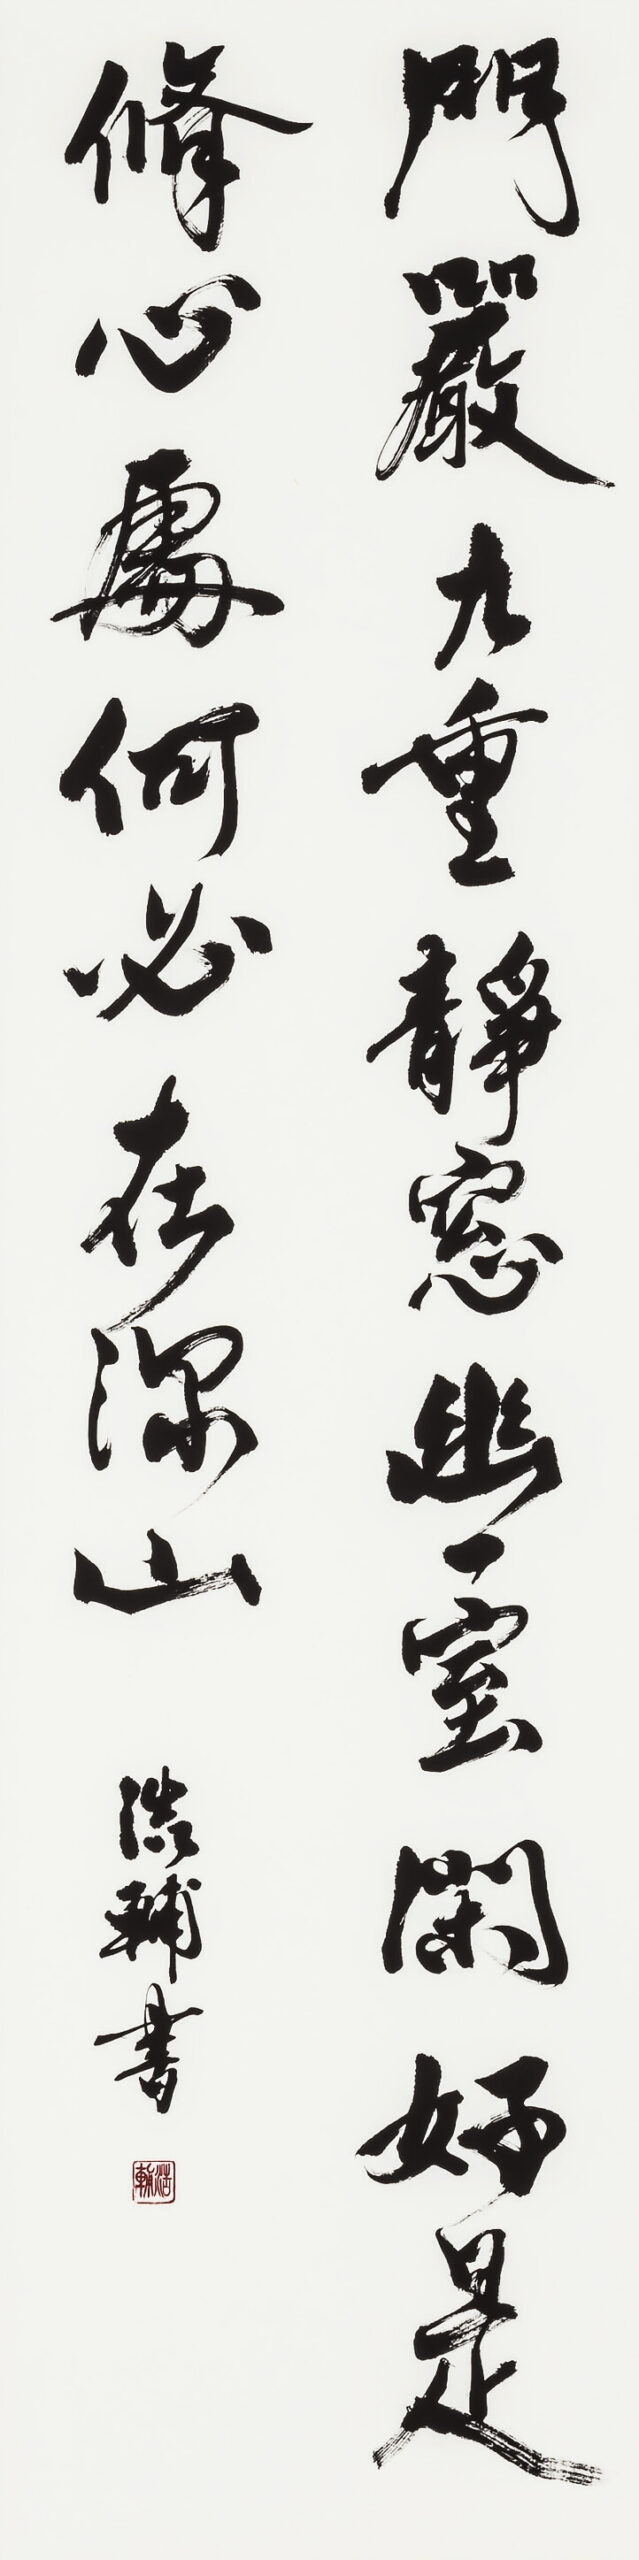 門嚴九重靜窓幽一室閑好是
修心處何必在深山
浩輔書
浩輔